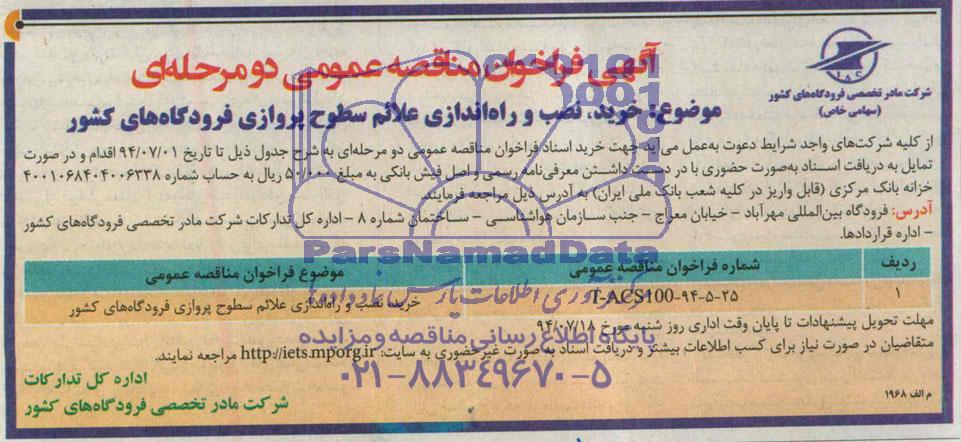 آگهی فراخوان مناقصه عمومی دو مرحله‌ای
IAC
شرکت مادر تخصصی فرودگاه‌های کشور
(سهامی خاص)
موضوع: خرید، نصب و راه‌اندازی علائم سطوح پروازی فرودگاه‌های کشور
از کلیه شرکت‌های واجد شرایط دعوت به‌عمل می آید جهت خرید اسناد فراخوان مناقصه عمومی دو مرحله‌ای به شرح جدول ذیل تا تاریخ ۹۴/۰۷/۰۱ اقدام و در صورت
تمایل به دریافت اسناد به‌صورت حضوری با در دست داشتن معرفی‌نامه رسمی و اصل فیش بانکی به مبلغ ۵۰/۰۰۰ ریال به حساب شماره ۴۰۰۱۰۶۸۴۰۴۰۰۶۳۳۸
خزانه بانک مرکزی (قابل واریز در کلیه شعب بانک ملی ایران) به آدرس ذیل مراجعه فرمایند.
آدرس: فرودگاه بین‌المللی مهرآباد - خیابان معراج - جنب سازمان هواشناسی - ساختمان شماره ۸ - اداره کل تدارکات شرکت مادر تخصصی فرودگاه‌های کشور
- اداره قراردادها.
ردیف شماره فراخوان مناقصه عمومی موضوع فراخوان مناقصه عمومی
۱ T-ACS100-۹۴-۵-۲۵ خرید، نصب و راه‌اندازی علائم سطوح پروازی فرودگاه‌های کشور
مهلت تحویل پیشنهادات تا پایان وقت اداری روز شنبه مورخ ۹۴/۰۷/۱۸
متقاضیان در صورت نیاز برای کسب اطلاعات بیشتر و دریافت اسناد به صورت غیرحضوری به سایت: http://iets.mporg.ir مراجعه نمایند.
اداره کل تدارکات
شرکت مادر تخصصی فرودگاه‌های کشور
م الف ۱۹۶۸
ParsNamadData
پایگاه اطلاع رسانی مناقصه و مزایده
۰۲۱-۸۸۳۴۹۶۷۰-۵